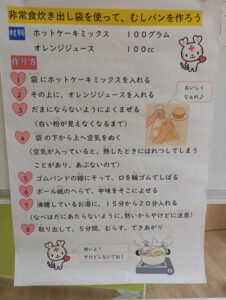 非常食炊き出し袋を使って、むしパンを作ろう
材料 ホットケーキミックス 100グラム
オレンジジュース 100cc
作り方
1 袋にホットケーキミックスを入れる
2 その上に、オレンジジュースを入れる
3 だまにならないようによくまぜる
(白い粉が見えなくなるまで)
おいしく
なぁれ♪
4 袋の下から上へ空気をぬく
(空気が入っていると、熱したときにはれつしてしまう
ことがあり、あぶないので)
5 ゴムバンドの線にそって、口を輪ゴムでしばる
6 ボール紙のへらで、中味をそこによせる
7 沸騰しているお湯に、15分から20分入れる
(なべはだにあたらないように、熱いからやけどに注意)
8 取り出して、5分間、むらす。できあがり
熱いよ
やけどしないでね!